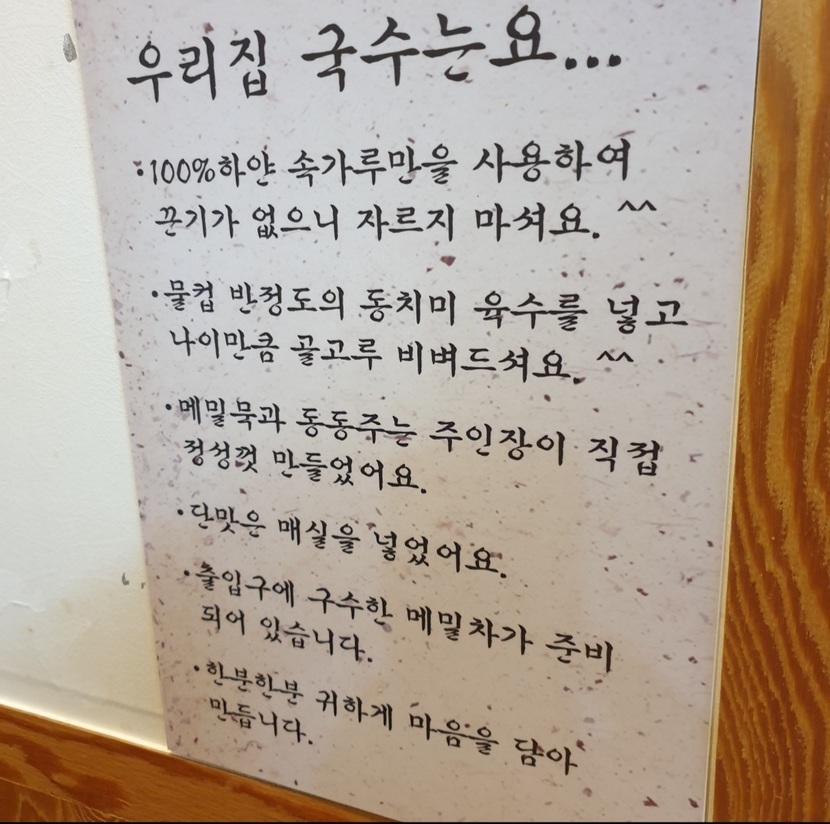 우리집 국수는요...
·100%하얀 속가루만을 사용하여
끈기가 없으니 자르지 마셔요. ^^
·물컵 반정도의 동치미 육수를 넣고
나이만큼 골고루 비벼드셔요. ^^
·메밀묵과 동동주는 주인장이 직접
정성껏 만들었어요.
·단맛은 매실을 넣었어요.
·출입구에 구수한 메밀차가 준비
되어 있습니다.
·한분한분 귀하게 마음을 담아
만듭니다.